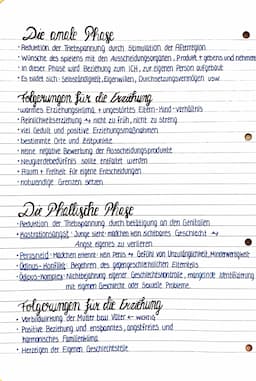 Die anale Phase
• Reduktion der Triebspannung durch Stimulation der Afterregion
• Wünsche des spielens mit den Ausscheidungsorganen, Produkt + gebens und nehmens
• in dieser Phase wird Beziehung zum ICH, zur eigenen Person aufgebaut
• Es bildet sich: Selbständigkeit, Eigenwillen, Durchsetzungsvermögen usw.
Folgerungen für die Erziehung
• warmes Erziehungsklima + ungestörtes Eltern-Kind-Verhältnis
• Reinlichkeitserziehung → nicht zu früh, nicht zu streng
• viel Geduld und positive Erziehungsmaßnahmen
• bestimmte Orte und Zeitpunkte
• keine negative Bewertung der Ausscheidungsprodukte
• Neugierdebedürfnis sollte entfaltet werden
• Raum + Freiheit für eigene Entscheidungen
• notwendige Grenzen setzen
Die Phallische Phase
• Reduktion der Triebspannung durch betätigung an den Genitalien
• Kastrationsangst: Junge sieht: mädchen kein sichtbares Geschlecht →
Angst eigenes zu verlieren
• Penisneid: Mädchen erkennt: kein Penis → Gefühl von Unzulänglichkeit, Minderwertigkeit
• Ödipus-Konflikt: Begehren des gegengeschlechtlichen Elternteils
• Ödipus-Komplex: Nichtbejahung eigener Geschlechtsrolle, mangelnde Identifizierung
mit eigenem Geschlecht oder Sexuale Probleme.
Folgerungen für die Erziehung
• Vorbildwirkung der Mutter bzw. Vater ← wichtig
• Positive Beziehung und enspanntes, angstfreies und
harmonisches Familienklima
• Herzeigen der Eigenen Geschlechtsteile